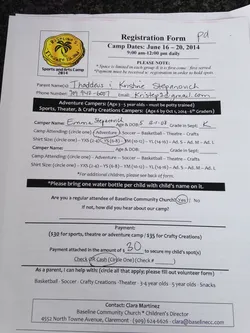 Registration Form
pd
Camp Dates: June 16 - 20, 2014
9:00 am-12:00 pm daily
Sports and Arts Camp
2014
PLEASE NOTE:
* Space is limited in each group & it is a first come - first served
*Payment must be received @ registration in order to hold spots
Parent Name(s): Thaddeus & Kristine Stepanovich
Phone Number: Email:
Adventure Campers (Age 3 - 5 year olds - must be potty trained)
Sports, Theater, & Crafty Creations Campers (Age 6 by Oct 1, 2014- 6th Graders)
Camper Name: Emma Stepanovich Age & DOB: Grade in Sept: K
Camp Attending: (circle one) Adventure - Soccer - Basketball - Theatre - Crafts
Camper Name: Age & DOB: Grade in Sept:
Camp Attending: (circle one) Adventure - Soccer - Basketball - Theatre - Crafts
*For additional campers, please use back.
*Please bring one water bottle per child with child's name on it.
Are you a regular attendee of Baseline Community Church? Yes No
If not, how did you hear about our camp?
PAYMENT
($30 for sports, theatre or adventure camp / $35 for Crafts)
Payment attached in the amount of $ 30 to secure my child's spot(s)
Check OR Cash (Circle One) (Check # )
As a parent, I can help with (circle all that apply; please fill out volunteer form)
Basketball - Soccer - Crafty Creations - Theater - 3-4 year olds - 5 year olds - Snacks
Contact: Clara Martinez
Baseline Community Church * Children's Director
4552 North Towne Avenue, Claremont - (909) 624-6626 - clara@baselinecc.com